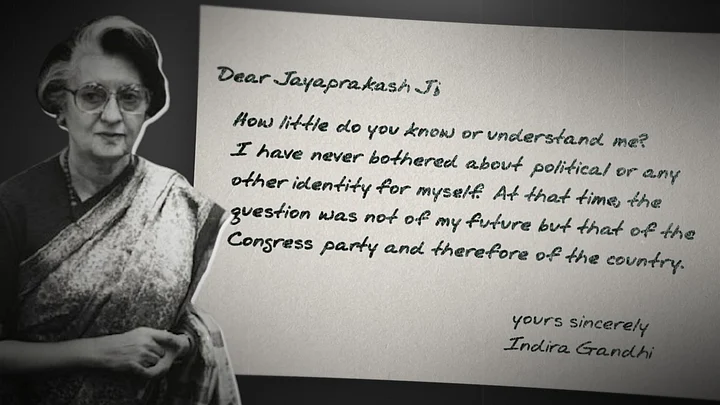 Dear Jayaprakash Ji
How little do you know or understand me?
I have never bothered about political or any
other identity for myself. At that time, the
question was not of my future but that of the
Congress party and therefore of the country.
yours sincerely
Indira Gandhi